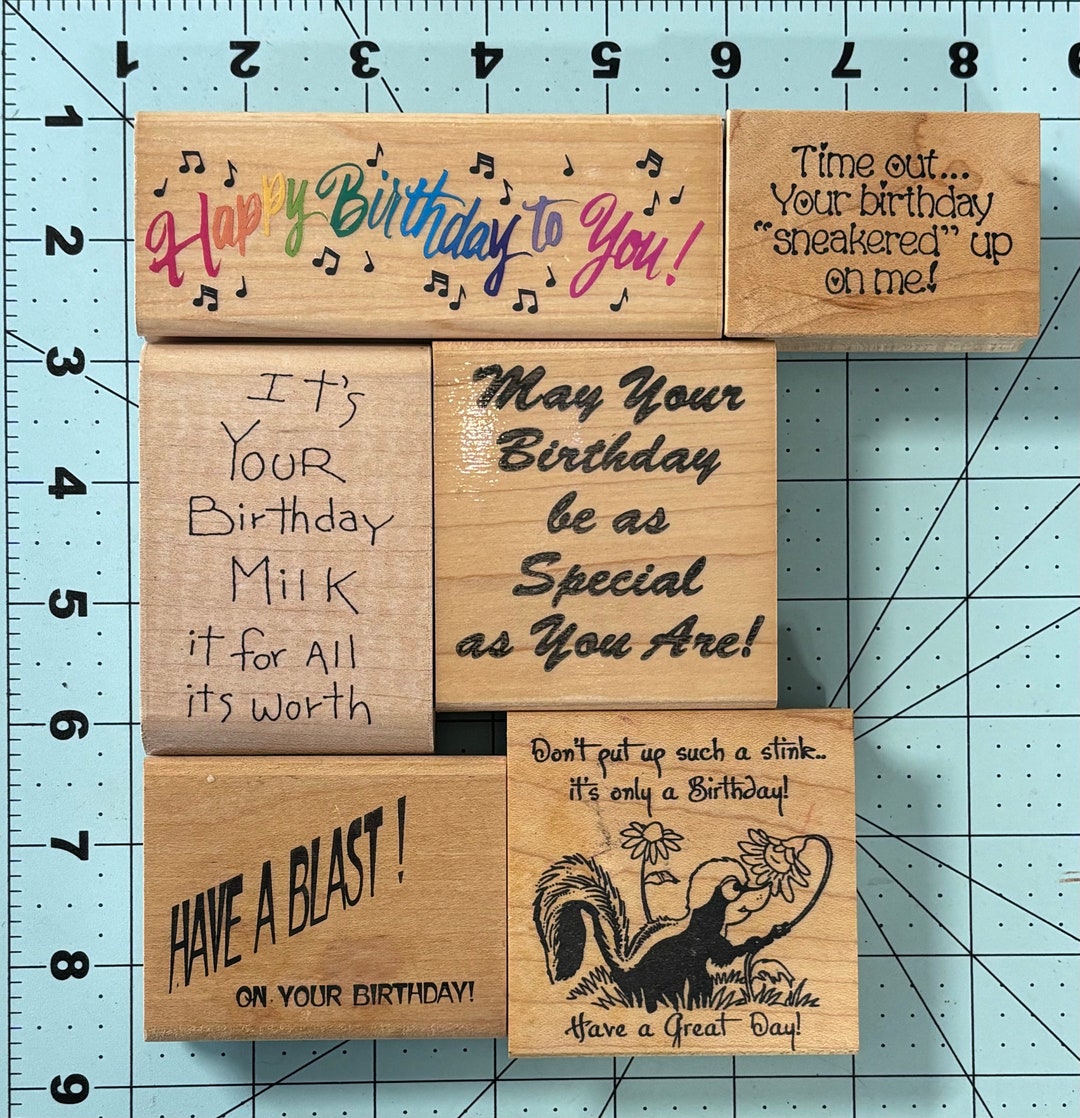 1 2 3 4 5 6 7 8 9
1
2
3
4
5
6
7
8
9
Happy Birthday to You!
Time out...
Your birthday
"sneakered" up
on me!
It's
Your
Birthday
Milk
it for All
its worth
May Your
Birthday
be as
Special
as You Are!
HAVE A BLAST!
ON YOUR BIRTHDAY!
Don't put up such a stink..
it's only a Birthday!
Have a Great Day!